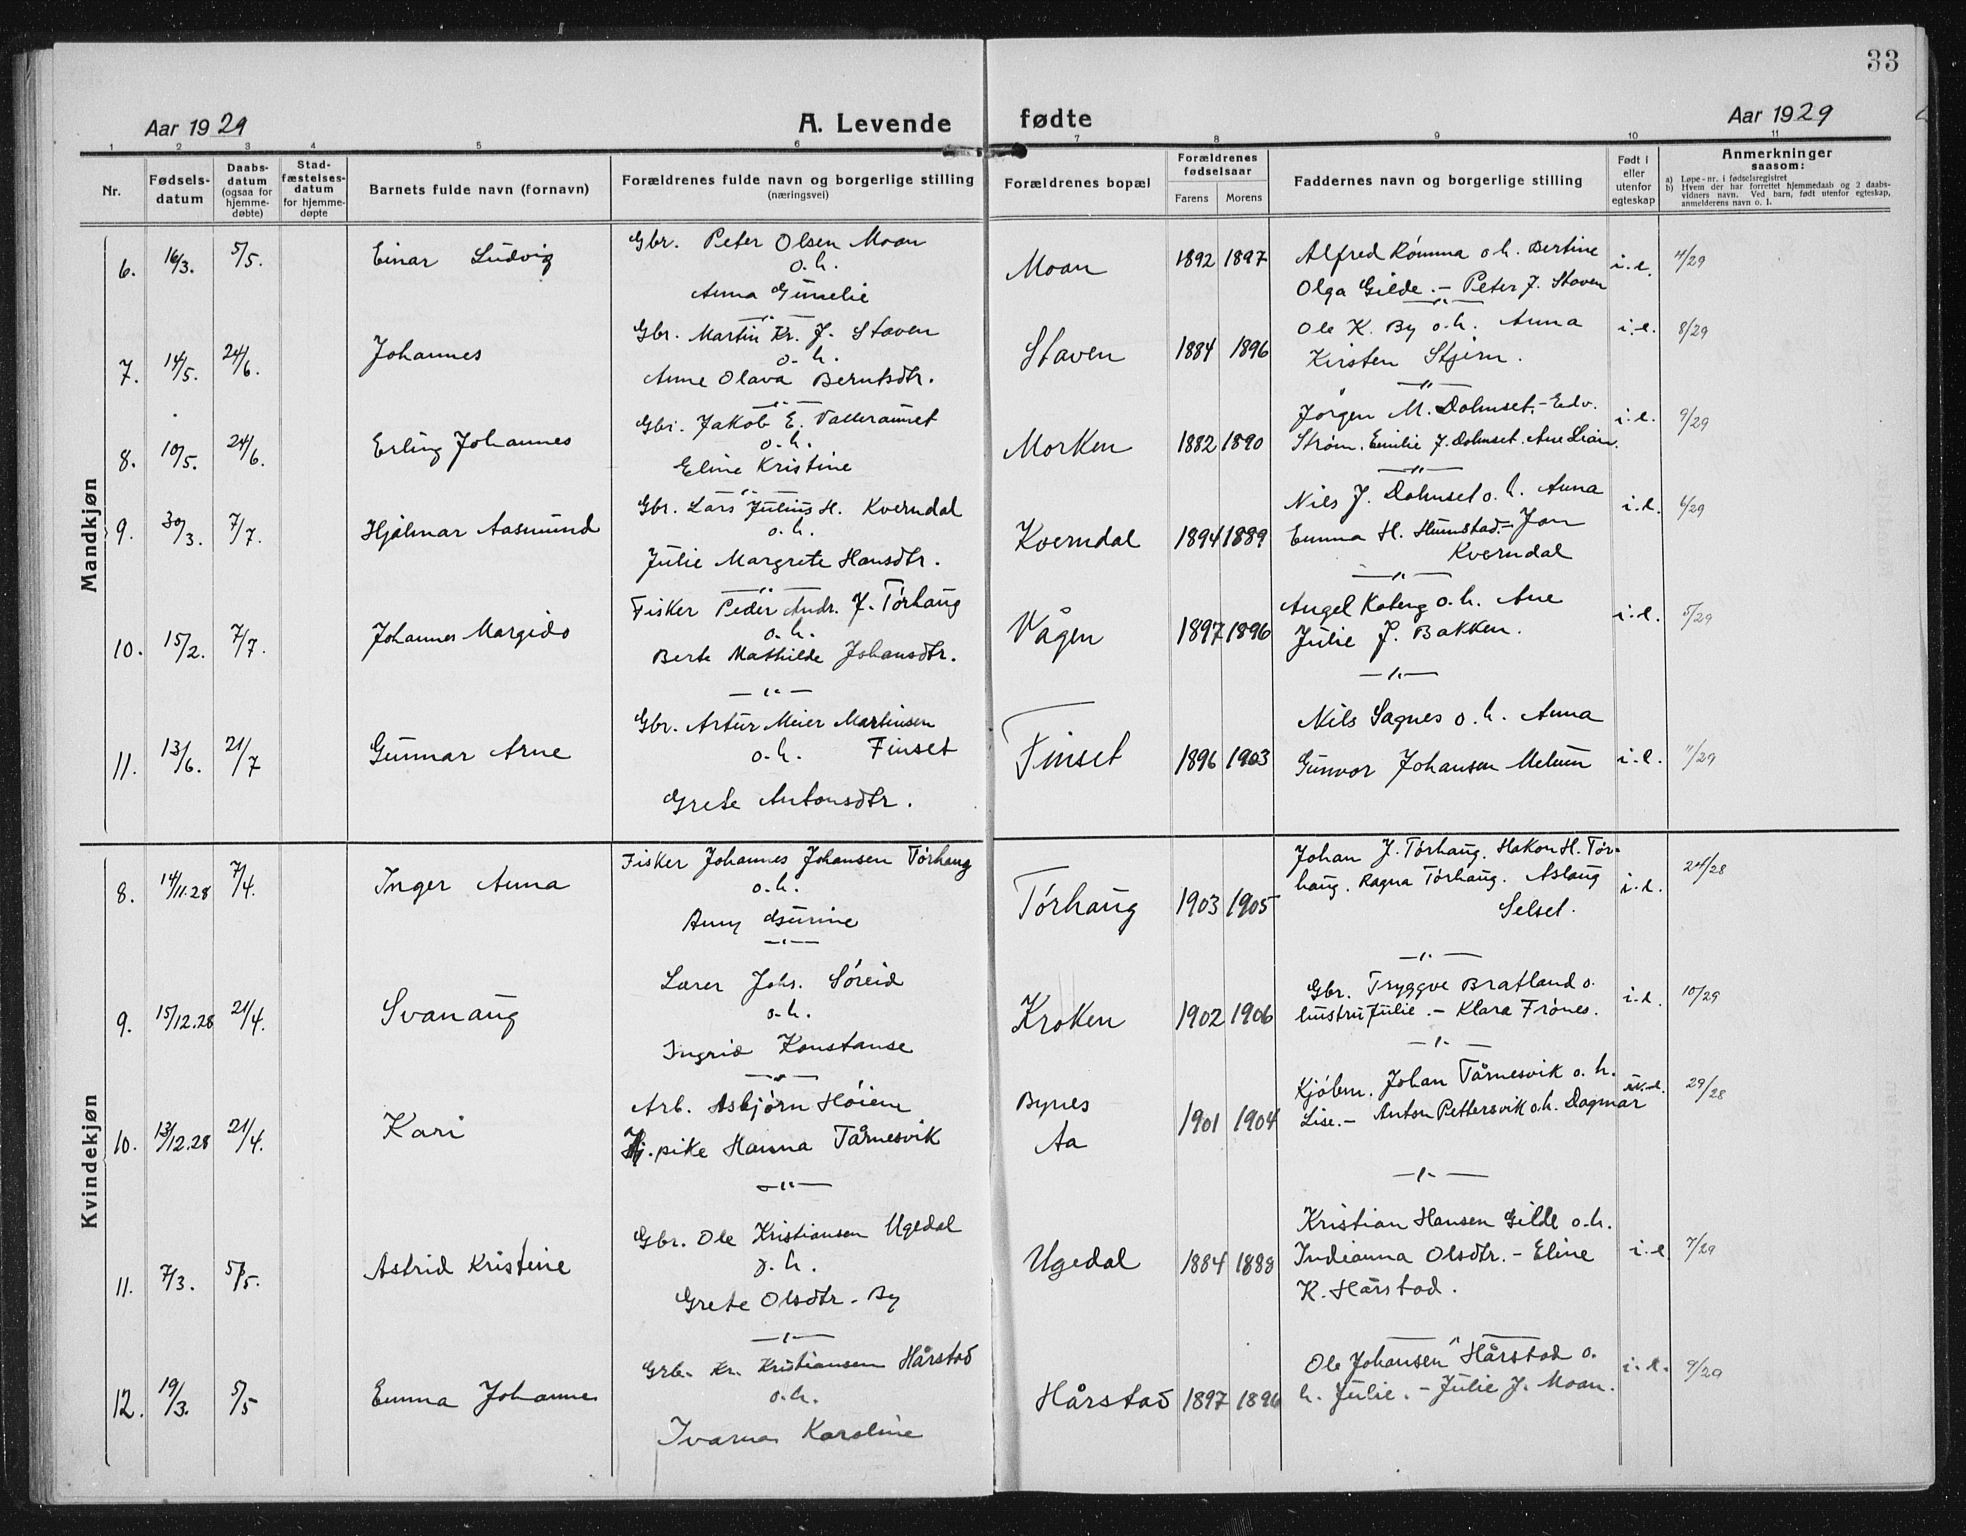 33
Aar 1929 A. Levende fødte Aar 1929
1 2 3 4 5 6 7 8 9 10 11
Nr.
Fødsels-
datum
Daabs-
datum
(ogsaa for
hjemme-
døbte)
Stad-
fæstelses-
datum
for hjemme-
døpte
Barnets fulde navn (fornavn)
Forældrenes fulde navn og borgerlige stilling
(næringsvei)
Forældrenes bopæl
Forældrenes
fødselsaar
Farens Morens
Faddernes navn og borgerlige stilling
Født i
eller
utenfor
egteskap
Anmerkninger
saasom:
a) Løpe-nr. i fødselsregistret
b) Hvem der har forrettet hjemmedaab og 2 daabs-
vidners navn. Ved barn, født utenfor egteskap,
anmelderens navn o. l.
Mandkjøn
6. 16/3. 5/5. Einar Ludvig
Gbr. Peter Olsen Moan
o.h.
Anna
Moan 1892 1897
Alfred Rømma o.h. Bertine
Olga Gilde. - Peter J. Staven
i.e. 4/29
7. 14/5. 24/6. Johannes
Gbr. Martin Kr. J. Staven
o.h.
Anne Olava Berntsdtr.
Staven 1884 1896
Ole K. By o.h. Anna
Kirsten Stjern.
i.e. 8/29
8. 10/5. 24/6. Erling Johannes
Gbr. Jakob E. Valleraunet
o.h.
Eline Kristine
Morken 1882 1890
Jørgen M. Dolmset. - Edv.
Strøm. Emilie J. Dolmset. Ane Lian.
i.e. 9/29
9. 30/3. 7/7. Hjalmar Aasmund
Gbr. Lars Julius H. Kverndal
o.h.
Julie Margrete Hansdtr.
Kverndal 1894 1889
Nils J. Dolmset o.h. Anna
Emma H. Humstad. - Jon
Kverndal
i.e. 6/29
10. 15/2. 7/7. Johannes Margido
Fisker Peder Andr. J. Tørhaug
o.h.
Berte Mathilde Johansdtr.
Vågen 1897 1896
Angel Koberg o.h. Ane
Julie J. Bakken.
i.e. 5/29
11. 13/6. 21/7 Gunnar Arne
Gbr. Artur Meier Martinsen
o.h. Finset
Grete Antonsdtr.
Finset 1896 1903
Nils Sagnes o.h. Anna
Gunvor Johansen Melum
i.e. 11/29
Kvindekjøn
8. 14/11.28 7/4. Inger Anna
Fisker Johannes Johansen Tørhaug
o.h.
Tørhaug 1903 1905
Johan J. Tørhaug. Hakon H. Tør-
haug. Ragna Tørhaug. Aslaug
Selset.
i.e. 24/28
9. 15/12.28 21/4. Svanaug
Lærer Johs. Søreid
o.h.
Ingrid Konstanse
Kroken 1902 1906
Gbr. Tryggve Bratland o.
hustru Julie. - Klara Frønes.
i.e. 10/29
10. 13/12.28 21/4. Kari
Arb. Asbjørn Høiem
pike Hanna Tårnesvik
Bynes
Aa
1901 1904
Kjøbm. Johan Tårnesvik o.h.
Lise. - Anton Pettersvik o.h. Dagmar
29/28
11. 7/3. 5/5. Astrid Kristine
Gbr. Ole Kristiansen Ugedal
o.h.
Grete Olsdtr. By
Ugedal 1884 1888
Kristian Hansen Gilde o.h.
Indianna Olsdtr. - Eline
K. Hårstad.
i.e. 7/29
12. 19/3. 5/5 Emma Johanne
Grb. Kr. Kristiansen Hårstad
o.h.
Ivarna Karoline
Hårstad 1897 1896
Ole Johansen Hårstad o.
h. Julie. - Julie J. Moan.
i.e. 9/29